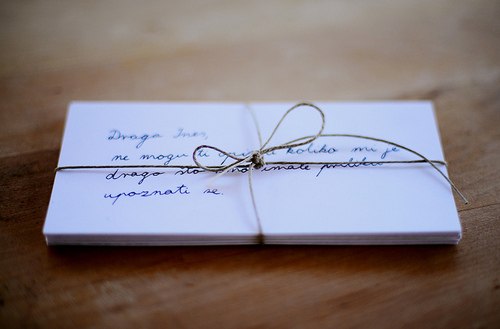 Draga Ines,
ne mogu ti koliko mi je
drago što priliku
upoznati se.